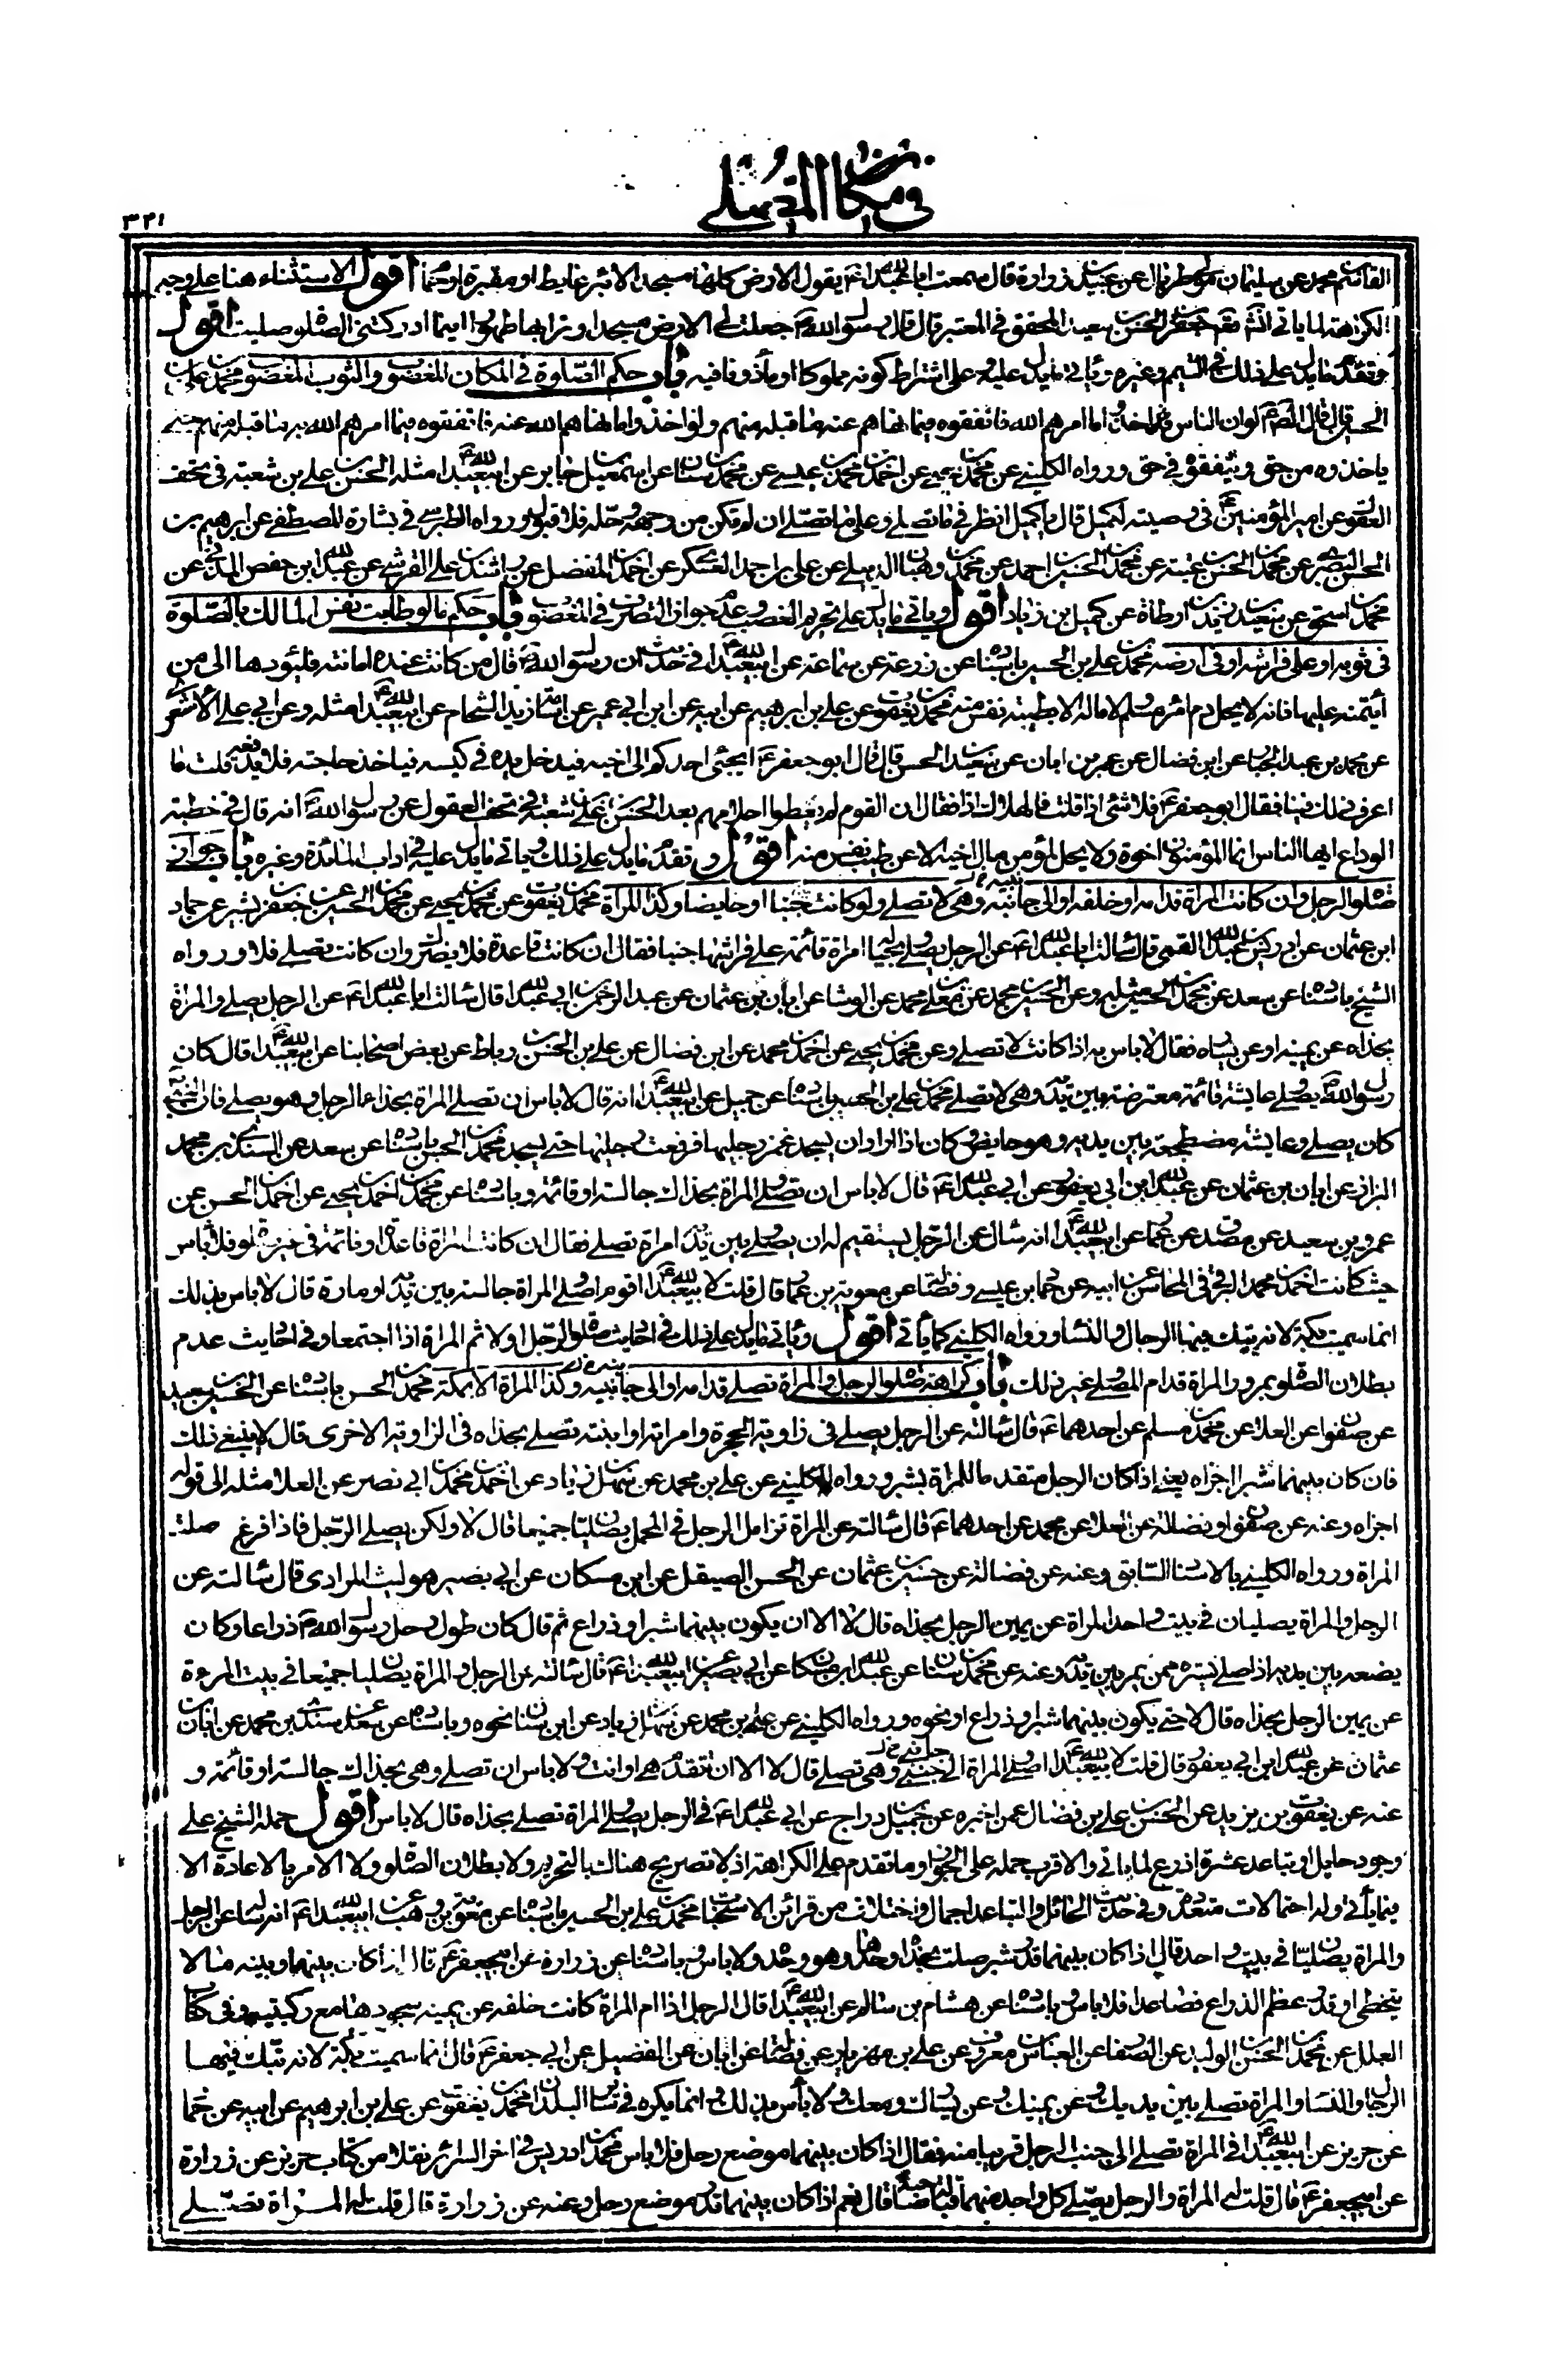 في مكان المصلي
٣٢١
القاسم بن محمد عن سليمان مولى طربال عن عبيد بن زرارة قال سمعت ابا عبد الله ع يقول الارض كلها مسجد الا بئر غايط او مقبرة او حمام اقول الاستثناء هنا على وجه
الكراهة لما ياتي انش تع جعفر بن الحسن بن سعيد المحقق في المعتبر قال قال رسول الله ص جعلت لي الارض مسجدا وترابها طهورا اينما ادركتني الصلوة صليت اقول
وتقدم ما يدل على ذلك في التيمم وغيره وياتي ما يدل عليه وعلى اشتراط كونه مملوكا او مأذونا فيه باب حكم الصلوة في المكان المغصوب والثوب المغصوب محمد بن علي بن
الحسين قال قال الص ع لو ان الناس اخذوا ما امرهم الله فانفقوه فيما نهاهم عنه ما قبله منهم ولو اخذوا ما نهاهم الله عنه فانفقوه فيما امرهم الله به ما قبله منهم حتى
ياخذوه من حق وينفقوه في حق ورواه الكليني عن محمد بن يحيى عن احمد بن محمد بن عيسى عن محمد بن سنان عن اسمعيل بن جابر عن ابيعبد الله ع مثله الحسن بن علي بن شعبة في تحف
العقول عن امير المؤمنين ع في وصيته لكميل قال يا كميل انظر في ما تصلي وعلى ما تصلي ان لم تكن من وجهه وحله فلا قبول ورواه الطبرسي في بشارة المصطفى عن ابرهيم بن
الحسن البصري عن محمد بن الحسن بن عتبة عن محمد بن الحسين بن احمد عن محمد بن وهبان الدبيلي عن علي بن احمد العسكري عن احمد بن المفضل عن راشد بن علي القرشي عن عبد الله بن حفص المدني عن
محمد بن اسحق عن سعيد بن زيد بن ارطاة عن كميل بن زياد اقول وياتي ما يدل على تحريم الغصب وعدم جواز التصرف في المغصوب باب حكم ما لو طابت نفس المالك بالصلوة
في ثوبه او على فراشه او في ارضه محمد بن علي بن الحسين باسناده عن زرعة عن سماعة عن ابيعبد الله ع في حديث ان رسول الله ص قال من كانت عنده امانة فليؤدها الى من
ائتمنه عليها فانه لا يحل دم امرء مسلم ولا ماله الا بطيبة نفس منه محمد بن يعقوب عن علي بن ابرهيم عن ابيه عن ابن ابي عمير عن ابي اسامة زيد الشحام عن ابيعبد الله ع مثله وعن ابي علي الاشعري
عن محمد بن عبد الجبار عن ابن فضال عن عمر بن ابان عن سعيد بن الحسن قال قال ابو جعفر ع ايجئ احدكم الى اخيه فيدخل يده في كيسه فياخذ حاجته فلا يدفعه قلت ما
اعرف ذلك فينا فقال ابو جعفر ع فلا شئ اذا قلت فالهلاك اذا فقال ان القوم لم يعطوا احلامهم بعد الحسن بن علي بن شعبة في تحف العقول عن رسول الله ص انه قال في خطبة
الوداع ايها الناس انما المؤمنون اخوة ولا يحل لمؤمن مال اخيه الا عن طيب نفس منه اقول وتقدم ما يدل على ذلك وياتي ما يدل عليه في اداب المائدة وغيره باب جواز
صلوة الرجل وان كانت المراة قدامه او خلفه او الى جانبه وهي لا تصلي ولو كانت جنبا او حايضا وكذا المراة محمد بن يعقوب عن محمد بن يحيى عن محمد بن الحسين عن جعفر بن بشير عن حماد
ابن عثمان عن ادريس بن عبد الله القمي قال سالت ابا عبد الله ع عن الرجل يصلي وبحياله امراة قائمة على فراشها جنبا فقال ان كانت قاعدة فلا يضرك وان كانت تصلي فلا ورواه
الشيخ باسناده عن سعد عن محمد بن الحسين مثله وعن الحسين بن محمد عن معلى بن محمد عن الوشا عن ابان بن عثمان عن عبد الرحمن بن ابي عبد الله قال سالت ابا عبد الله ع عن الرجل يصلي والمراة
بحذاه عن يمينه او عن يساره فقال لا باس به اذا كانت لا تصلي وعن محمد بن يحيى عن احمد بن محمد عن ابن فضال عن علي بن الحسن بن رباط عن بعض اصحابنا عن ابيعبد الله ع قال كان
رسول الله ص يصلي وعايشة قائمة معترضة بين يديه وهي لا تصلي محمد بن علي بن الحسين باسناده عن جميل عن ابيعبد الله ع انه قال لا باس ان تصلي المراة بحذاء الرجل وهو يصلي فان النبي ص
كان يصلي وعايشة مضطجعة بين يديه وهي حايض وكان اذا اراد ان يسجد غمز رجليها فرفعت رجليها حتى يسجد محمد بن الحسن باسناده عن سعد عن السندي بن محمد
البزاز عن ابان بن عثمان عن عبد الله بن ابي يعفور عن ابي عبد الله ع قال لا باس ان تصلي المراة بحذاك جالسة او قائمة وباسناده عن محمد بن احمد بن يحيى عن احمد بن الحسن عن
عمرو بن سعيد عن مصدق عن عمار عن ابيعبد الله ع انه سال عن الرجل يستقيم له ان يصلي بين يديه امراة تصلي فقال ان كانت المراة قاعدة او قائمة في غير صلوة فلا باس
حيث كانت احمد بن محمد البرقي في المحاسن عن ابيه عن حماد بن عيسى وفضالة عن معوية بن عمار قال قلت لابيعبد الله ع اقوم اصلي والمراة جالسة بين يدي او مارة قال لا باس بذلك
انما سميت بكة لانه تبك فيها الرجال والنساء ورواه الكليني كما ياتي اقول وياتي ما يدل على ذلك في احاديث صلوة الرجل اولا ثم المراة اذا اجتمعا وفي احاديث عدم
بطلان الصلوة بمرور المراة قدام المصلي وغير ذلك باب كراهة صلوة الرجل والمراة تصلي قدامه او الى جانبيه وكذا المراة الا بمكة محمد بن الحسن باسناده عن الحسين بن سعيد
عن صفوان عن العلا عن محمد بن مسلم عن احدهما ع قال سالته عن الرجل يصلي في زاوية الحجرة وامراته او ابنته تصلي بحذاه في الزاوية الاخرى قال لا ينبغي ذلك
فان كان بينهما شبر اجزاه يعني اذا كان الرجل متقدما للمراة بشبر ورواه الكليني عن علي بن محمد عن سهل بن زياد عن احمد بن محمد بن ابي نصر عن العلا مثله الى قوله
اجزاه وعنه عن صفوان وفضالة عن العلا عن محمد عن احدهما ع قال سالته عن المراة تزامل الرجل في المحمل يصليان جميعا قال لا ولكن يصلي الرجل فاذا فرغ صلت
المراة ورواه الكليني بالاسناد السابق وعنه عن فضالة عن حسين بن عثمان عن الحسن الصيقل عن ابن مسكان عن ابي بصير هو ليث المرادي قال سالته عن
الرجل والمراة يصليان في بيت واحد المراة عن يمين الرجل بحذاه قال لا الا ان يكون بينهما شبر او ذراع ثم قال كان طول رحل رسول الله ص ذراعا وكان
يضعه بين يديه اذا صلى يستره ممن يمر بين يديه وعنه عن محمد بن سنان عن عبد الله بن مسكان عن ابي بصير عن ابيعبد الله ع قال سالته عن الرجل والمراة يصليان جميعا في بيت المرءة
عن يمين الرجل بحذاه قال لا حتى يكون بينهما شبر او ذراع او نحوه ورواه الكليني عن علي بن محمد عن سهل بن زياد عن ابن سنان نحوه وباسناده عن سعد عن سندي بن محمد عن ابان بن
عثمان عن عبد الله بن ابي يعفور قال قلت لابيعبد الله ع اصلي والمراة الى جنبي وهي تصلي قال لا الا ان تتقدم هي او انت ولا باس ان تصلي وهي بحذاك جالسة او قائمة و
عنه عن يعقوب بن يزيد عن الحسن بن علي بن فضال عمن اخبره عن جميل بن دراج عن ابي عبد الله ع في الرجل يصلي والمراة تصلي بحذاه قال لا باس اقول حمله الشيخ على
وجود حايل او تباعد عشرة اذرع لما ياتي والاقرب حمله على الجواز وما تقدم على الكراهة اذ لا تصريح هناك بالتحريم ولا بطلان الصلوة ولا الامر بالاعادة الا
فيما ياتي وله احتمالات متعددة وفي حديث الحائل والتباعد اجمال واختلاف من قرائن الاستحباب محمد بن علي بن الحسين باسناده عن معوية بن وهب عن ابيعبد الله ع انه ساله عن الرجل
والمراة يصليان في بيت واحد قال اذا كان بينهما قدر شبر صلت بحذاه وحدها وهو وحده ولا باس وباسناده عن زرارة عن ابيجعفر ع قال اذا كان بينها وبينه ما لا
يتخطى او قدر عظم الذراع فصاعدا فلا باس وباسناده عن هشام بن سالم عن ابيعبد الله ع قال الرجل اذا ام المراة كانت خلفه عن يمينه سجودها مع ركبتيه وفي كتاب
العلل عن محمد بن الحسن بن الوليد عن الصفار عن العباس بن معروف عن علي بن مهزيار عن فضالة عن ابان عن الفضيل عن ابي جعفر ع قال انما سميت مكة بكة لانه تبك فيها
الرجال والنساء والمراة تصلي بين يديك وعن يمينك وعن يسارك ومعك ولا باس بذلك وانما يكره في ساير البلدان محمد بن يعقوب عن علي بن ابرهيم عن ابيه عن حماد
عن حريز عن ابيعبد الله ع في المراة تصلي الى جنب الرجل قريبا منه فقال اذا كان بينهما موضع رحل فلا باس محمد بن ادريس في اخر السرائر نقلا من كتاب حريز عن زرارة
عن ابيجعفر ع قال قلت له المراة والرجل يصلي كل واحد منهما قبالة صاحبه قال نعم اذا كان بينهما قدر موضع رحل وعنه عن زرارة قال قلت له المراة تصلي